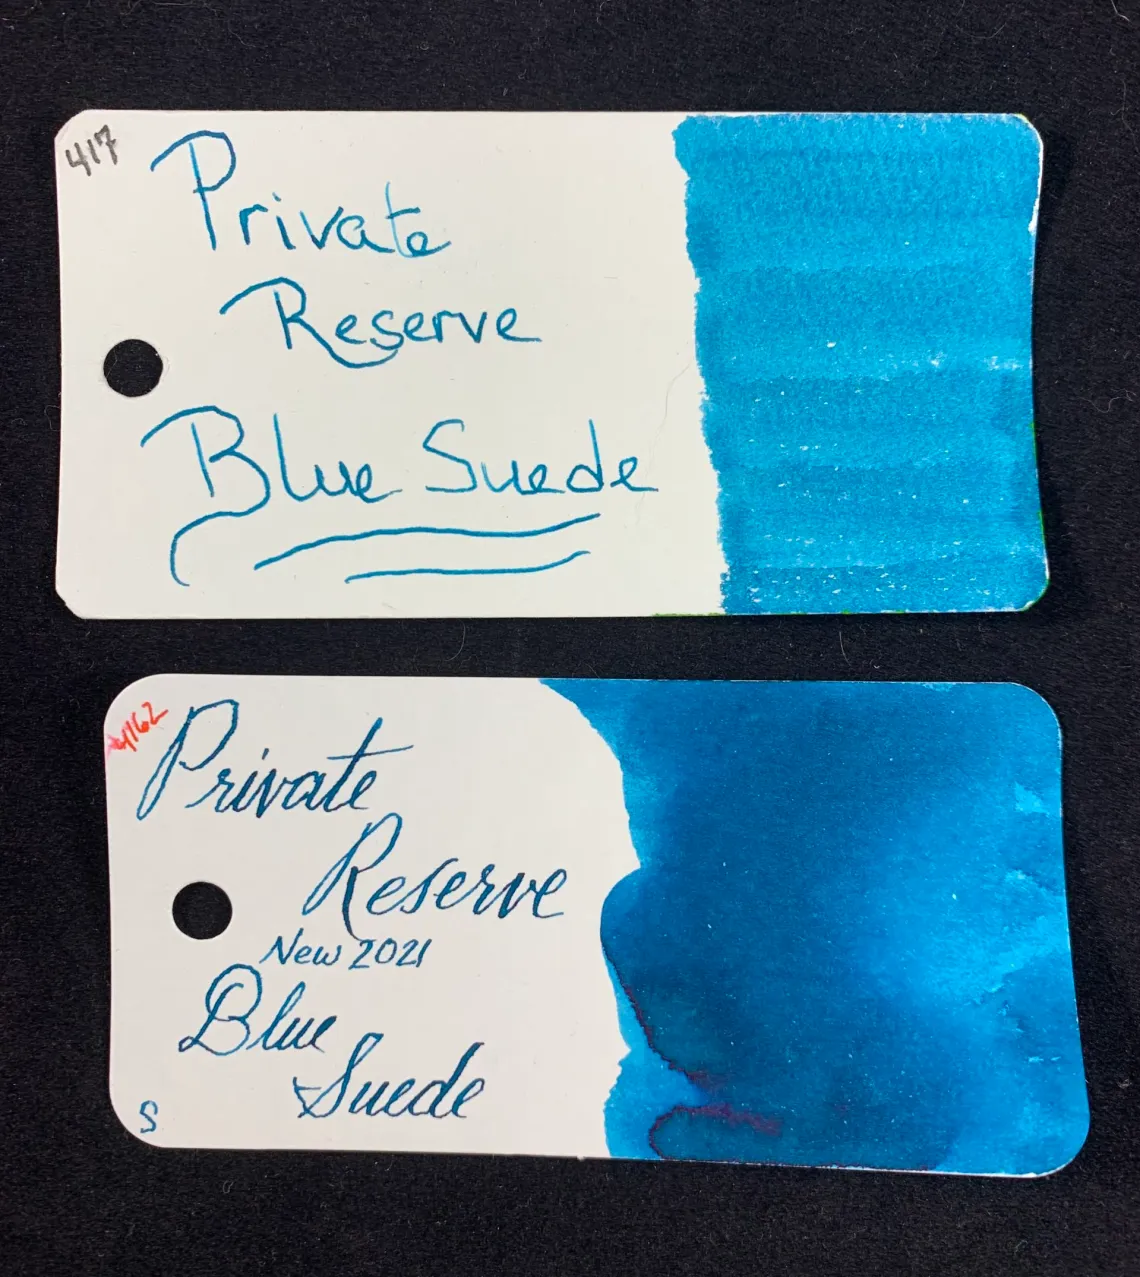 417
Private
Reserve
Blue Suede
Private
Reserve
New 2021
Blue
Suede
S